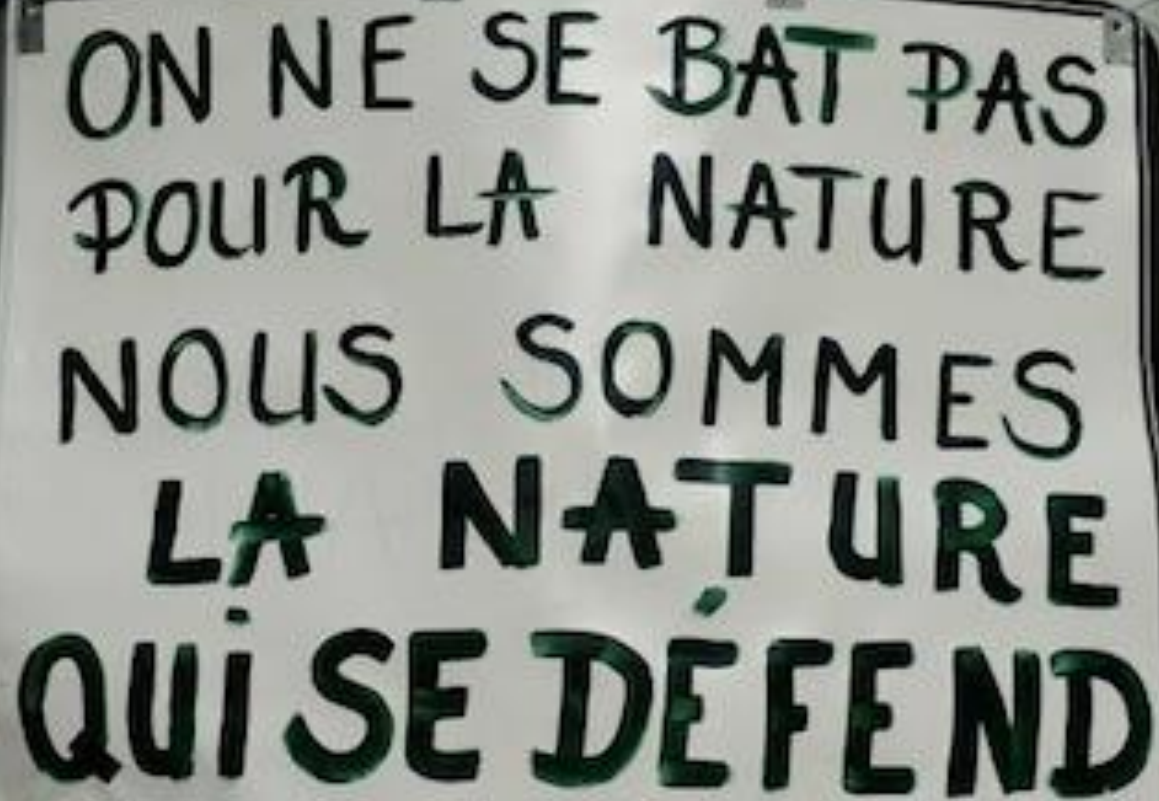 ON NE SE BAT PAS
POUR LA NATURE
NOUS SOMMES
LA NATURE
QUi SE DÉFEND